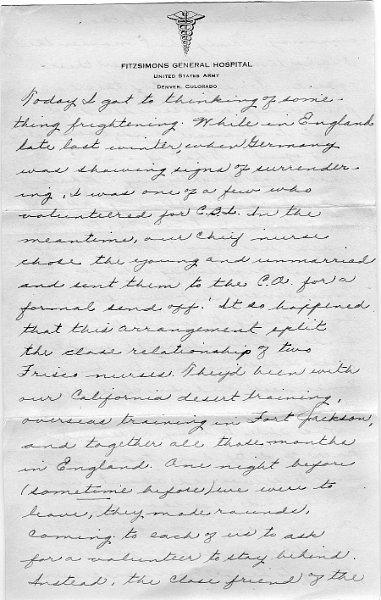 FITZSIMONS GENERAL HOSPITAL
UNITED STATES ARMY
DENVER, COLORADO
Today I got to thinking of some-
thing frightening. While in England
late last winter, when Germany
was showing signs of surrender-
ing, I was one of a few who
volunteered for C.B.I. In the
meantime, our chief nurse
chose the young and unmarried
and sent them to the C.O. for a
formal send off! It so happened
that this arrangement split
the close relationship of two
Frisco nurses. They'd been with
our California desert training,
overseas training in Fort Jackson,
and together all those months
in England. One night before
(sometime before) we were to
leave, they made rounds,
coming to each of us to ask
for a volunteer to stay behind.
Instead, the close friend of the